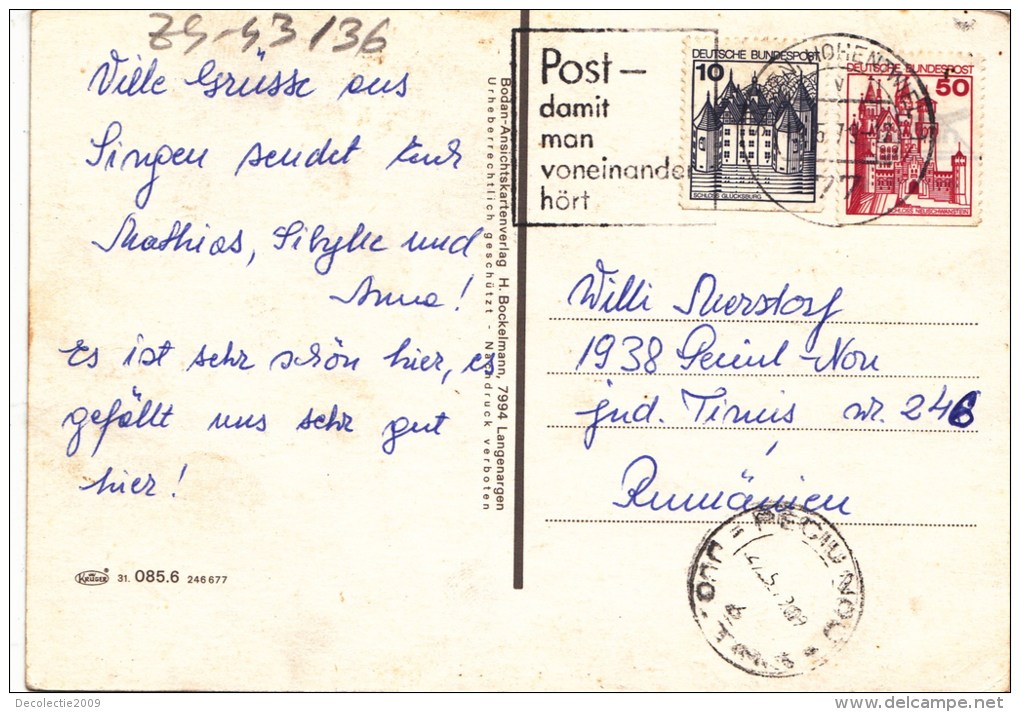 ZG-43/36
Ville Grüsse aus
Singen sendet Euch
Mathias, Sibylle und
Anna!
Es ist sehr schön hier, es
gefällt uns sehr gut
hier!
KRÜGER 31. 085.6 246 677
Bodan-Ansichtskartenverlag H. Bockelmann, 7994 Langenargen
Urheberrechtlich geschützt - Nachdruck verboten
Post –
damit
man
voneinander
hört
DEUTSCHE BUNDESPOST
10
SCHLOSS GLÜCKSBURG
DEUTSCHE BUNDESPOST
50
SCHLOSS NEUSCHWANSTEIN
77
Willi
1938 Peciul-Nou
jud. Timis nr. 246
Rumänien
PECIU NOU
Decolectie2009
delcampe.net